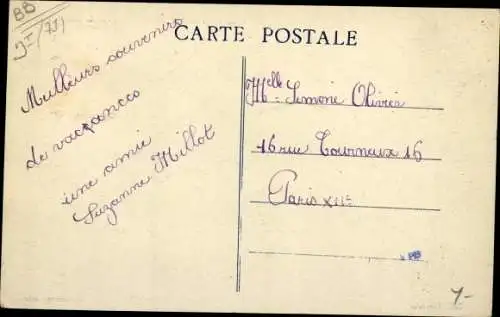 BB
(75)
CARTE POSTALE
Meilleurs souvenirs
de vacances
une amie
Suzanne Millot
Melle Simone Olivier
16 rue Tourneux 16
Paris XIIe